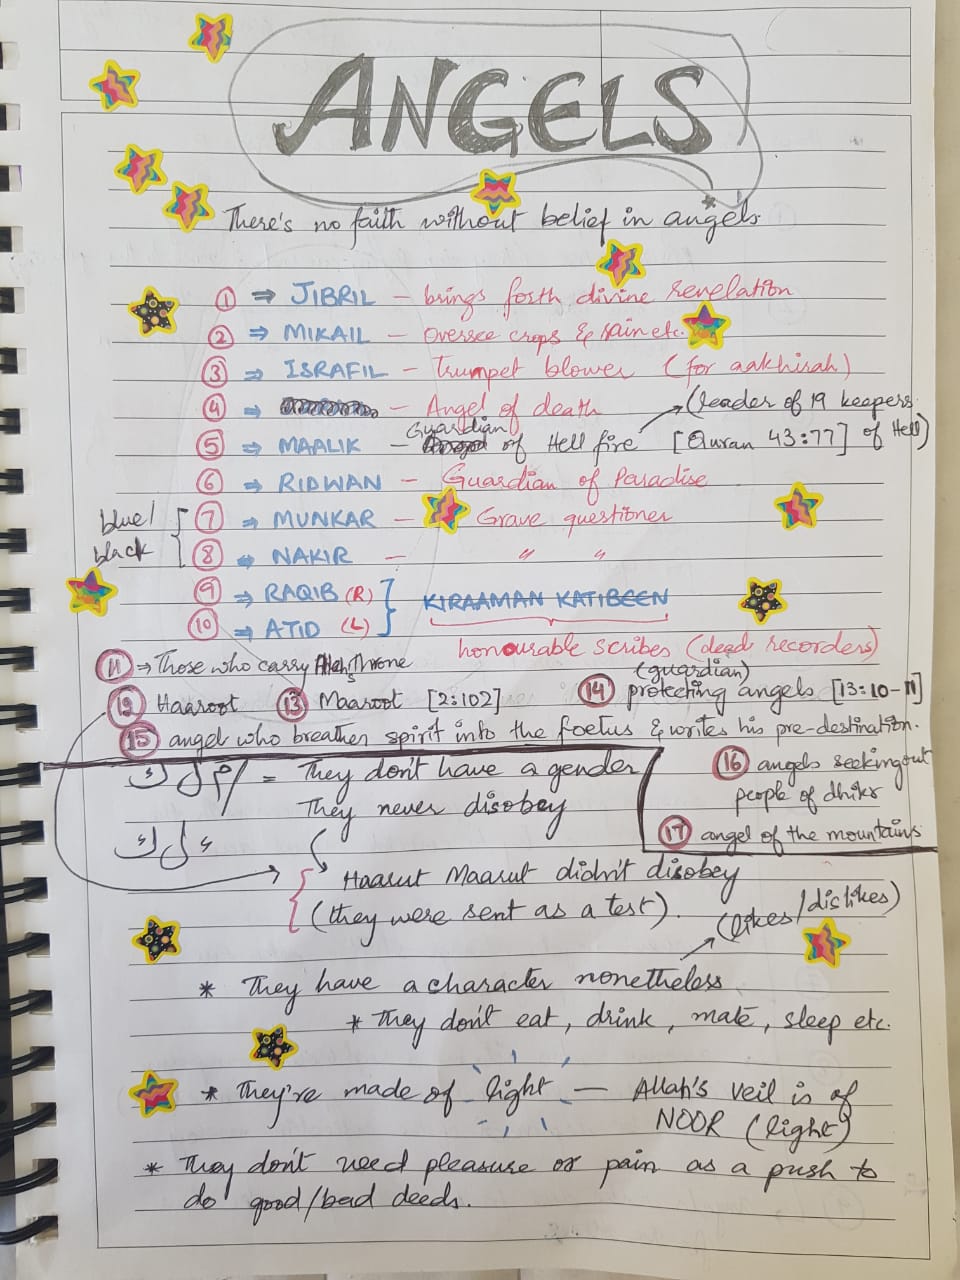 ANGELS
There's no faith without belief in angels
① ⇒ JIBRIL – brings forth divine revelation
② ⇒ MIKAIL – Oversee crops & rain etc.
③ ⇒ ISRAFIL – Trumpet blower (for aakhirah)
④ ⇒ – Angel of death (leader of 19 keepers of Hell)
⑤ ⇒ MAALIK – Guardian of Hell fire [Quran 43:77]
⑥ ⇒ RIDWAN – Guardian of Paradise
blue/black
⑦ ⇒ MUNKAR – Grave questioner
⑧ ⇒ NAKIR – " "
⑨ ⇒ RAQIB (R)
KIRAAMAN KATIBEEN
⑩ ⇒ ATID (L)
honourable scribes (dead recorders)
⑪ → Those who carry Allah's Throne
(guardian)
⑫ Haaroot ⑬ Maaroot [2:102] ⑭ protecting angels [13:10-11]
⑮ angel who breathes spirit into the foetus & writes his pre-destination.
= They don't have a gender
They never disobey
⑯ angels seeking out
people of dhikr
⑰ angel of the mountains
Haarut Maarut didn't disobey
(they were sent as a test).
(likes/dislikes)
* They have a character nonetheless
* They don't eat, drink, mate, sleep etc.
* They're made of light — Allah's veil is of
NOOR (light)
* They don't need pleasure or pain as a push to
do good/bad deeds.